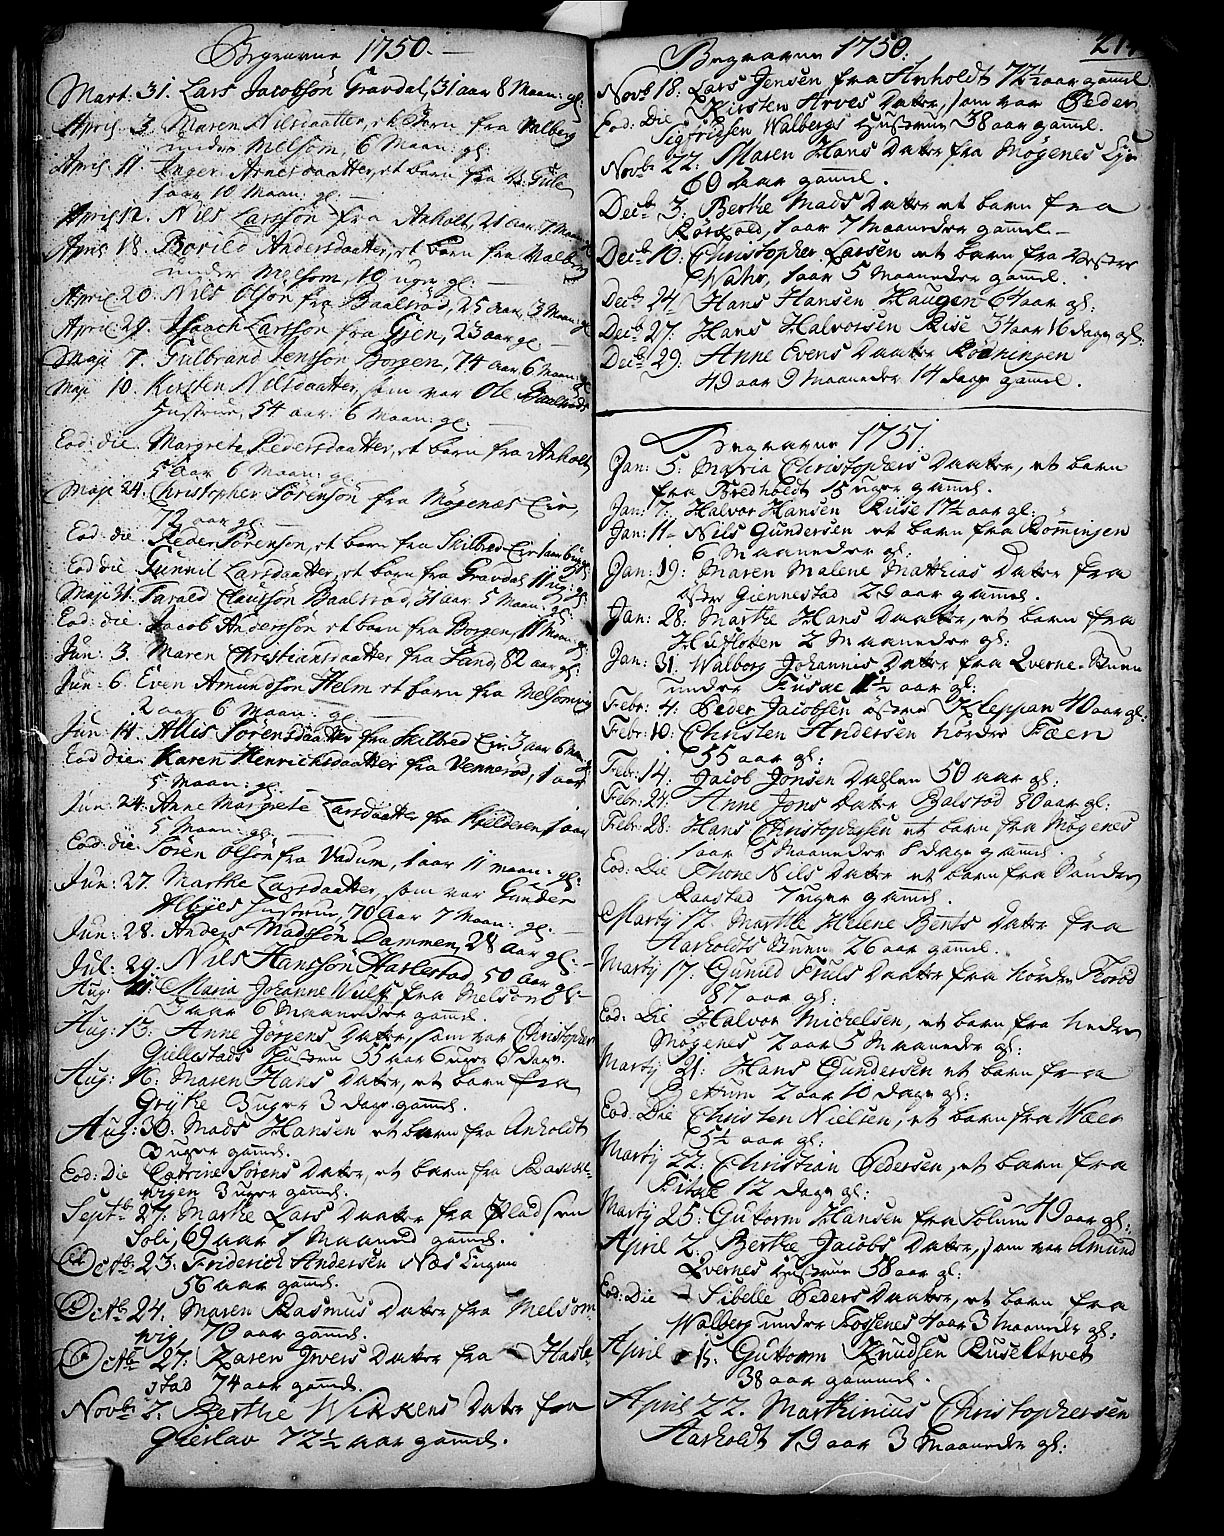 Begravne 1750.
Mart: 31. Lars Jacobsön Gravdal, 31 aar 8 Maan: gl:
April 3. Maren Nilsdaatter, et Barn fra Valberg
under Melsom 6 Maan: gl:
April 11. Inger Arnesdaatter, et barn fra
1 aar 10 Maan: gl:
April 12. Nils Larssön fra Anholt, 21 aar 7 Maan:
April 18. Borild Andersdaatter, et barn fra Valberg
under Melsom, 10 uger gl:
April 20. Nils Olsön fra Baalsrød, 25 aar, 3 Maan: gl
April 29. Isaach Larssön fra Gjen, 23 aar gl:
Maji 7. Gulbrand Jenssön Borgen, 74 aar 6 Maan: gl
Maji 10. Kirsten Nilsdaatter, som var Ole Baalsrøds
Hustrue, 54 aar 6 Maan: gl:
Eod: die. Margrete Pedersdaatter, et barn fra Anholt,
5 aar 6 Maan: gl:
Maji 24. Christopher Sörensön fra Møgenæs Eie,
79 aar gl:
Eod: die: Peder Sörensön, et barn fra Skilbred Eie 1 aar
Eod die Gunnil Larsdaatter, et barn fra Gravdal 11 ug: gl:
Maji 31. Tarald Claussön Baalsrød, 31 aar 5 Maan: gl:
Eod: die: Jacob Anderssön et barn fra Borgen, 11 Maan: gl:
Jun: 3. Maren Christiansdaatter fra Sand, 82 aar gl:
Jun: 6. Even Amundsøn Helm et barn fra Melsomvig
2 aar 6 Maan: gl:
Jun: 14. Allis Sörensdaatter fra Skilbred Eie 3 aar 6 maan:
Eod die: Karen Henrichsdaatter fra Vennerød, 1 aar
5 Maan: gl:
Jun: 24. Anne Margrete Larsdaatter fra Kjelderen, 1 aar
5 Maan: gl:
Eod: die: Sören Olsön fra Vadum, 1 aar 11 maan: gl:
Jun: 27. Marthe Larsdaatter, som var Gunder
Albyes Hustrue, 70 Aar 7 Maan: gl:
Jun: 28. Anders Madssön Dammen, 28 aar gl:
Jul: 29. Nils Hanssön Haslestad 50 aar gl:
Aug: 11: Maria Johanne Wulf fra Melsom
3 aar 6 Maaneder gamel.
Aug: 13: Anne Jørgens Dater, som var Christopher
Gillestads Hustrue 55 aar 6 uger 6 dage.
Aug: 16: Maren Hans Dater, et barn fra
Gryte 3 uger 3 dage gamel.
Aug: 30: Mads Hansen et barn fra Anholdt
3 uger gamel.
Eod: Die Catrine Sørens Dater, et barn fra Bakke
wigen 3 uger gamel.
Septb: 27: Marthe Lars Daater fra Pladsen
Soli, 69 aar 1 Maaned gamel.
Octb: 23: Friderich Andersen Næs Eugen
56 aar gamel.
Octb: 24. Maren Rasmus Dater fra Melsom
wig, 70 aar gamel.
Octb: 27: Karen Iwers Dater fra Hasle
stad 74 aar gamel.
Novb: 2. Berthe Wirkens Dater fra
Gierlav 72½ aar gamel.
Begravne 1750:
Novb: 18: Lars Jensen fra Anholdt 72½ aar gamel
Eod: Die Kirsten Arves Dater, som var Peder
Sigfridsen Walbergs Hustrue 38 aar gamel.
Novb: 22: Maren Hans Dater fra Møgenes Eje
60 aar gamel.
Decb: 3: Berthe Mads Dater et barn fra
1 aar 7 maaneder gamel.
Decb: 10: Christopher Larsen et barn fra Vester
1 aar 5 Maaneder gamel.
Decb: 24 Hans Hansen Haugen 64 aar gl:
Decb: 27: Hans Halvorsen Rise 34 aar 16 dage gl:
Decb: 29: Anne Evens Daater Rødningen
49 aar 9 Maaneder 14 dage gamel.
Begravne 1751:
Jan: 5: Maria Christophers Daater, et barn
fra Bredholdt 15 uger gamel.
Jan: 7: Halvor Hansen Ruse 17½ aar gl:
Jan: 11 Nils Gundersen et barn fra Romingen
6 Maaneder gl:
Jan: 19: Maren Malene Mathias Dater fra
øster Giennestad 29 aar gamel.
Jan: 28: Marthe Hans Daater, et barn fra
Hufloten 2 Maaneder gl:
Jan: 31. Walborg Johannis Dater fra Qverne-Tuen
under Fuske 1½ aar gl:
Febr: 4. Peder Jacobsen østre Kleppan 40 aar gl:
Febr: 10: Christen Andersen nordre Fæen
55 aar gl:
Febr: 14: Jacob Jonsen Dahlen 50 aar gl:
Febr: 24: Anne Jons Dater Balstod 80 aar gl:
Febr: 28: Hans Christophersen et barn fra Møgenes
1 aar 5 Maaneder 8 dage gamel.
Eod: Die Thone Nils Dater et barn fra Sønder
Raastad 7 uger gamel.
Martij 12. Marthe Helene Bents Dater fra
Aarholdts Tuen 26 aar gamel.
Martij 17: Gunild Truls Daater fra nordre Torød
87 aar gl:
Eod: Die Halvor Michelsen, et barn fra neder
Møgenes 2 aar 5 Maaneder gl:
Martij 21: Hans Gundersen et barn fra
Bettum 2 aar 10 dage gl:
Eod: Die Christen Nielsen, et barn fra Wæer
5½ aar gl:
Martij 22: Christian Pedersen, et barn fra
12 dage gl:
Martij 25: Guttorm Hansen fra Solum 49 aar gl:
April 2. Berthe Jacobs Dater, som var Amund
Qvernes Hustrue 58 aar gl:
Eod: Die Sibelle Peders Daater, et barn fra
Walberg under Fossenes 4 aar 3 Maaneder gl:
April 15. Guttorm Knudsen Ruseltwet
38 aar gammel.
April 22. Marthinius Christophersen
Aarholdt 19 aar 3 Maaneder gl: